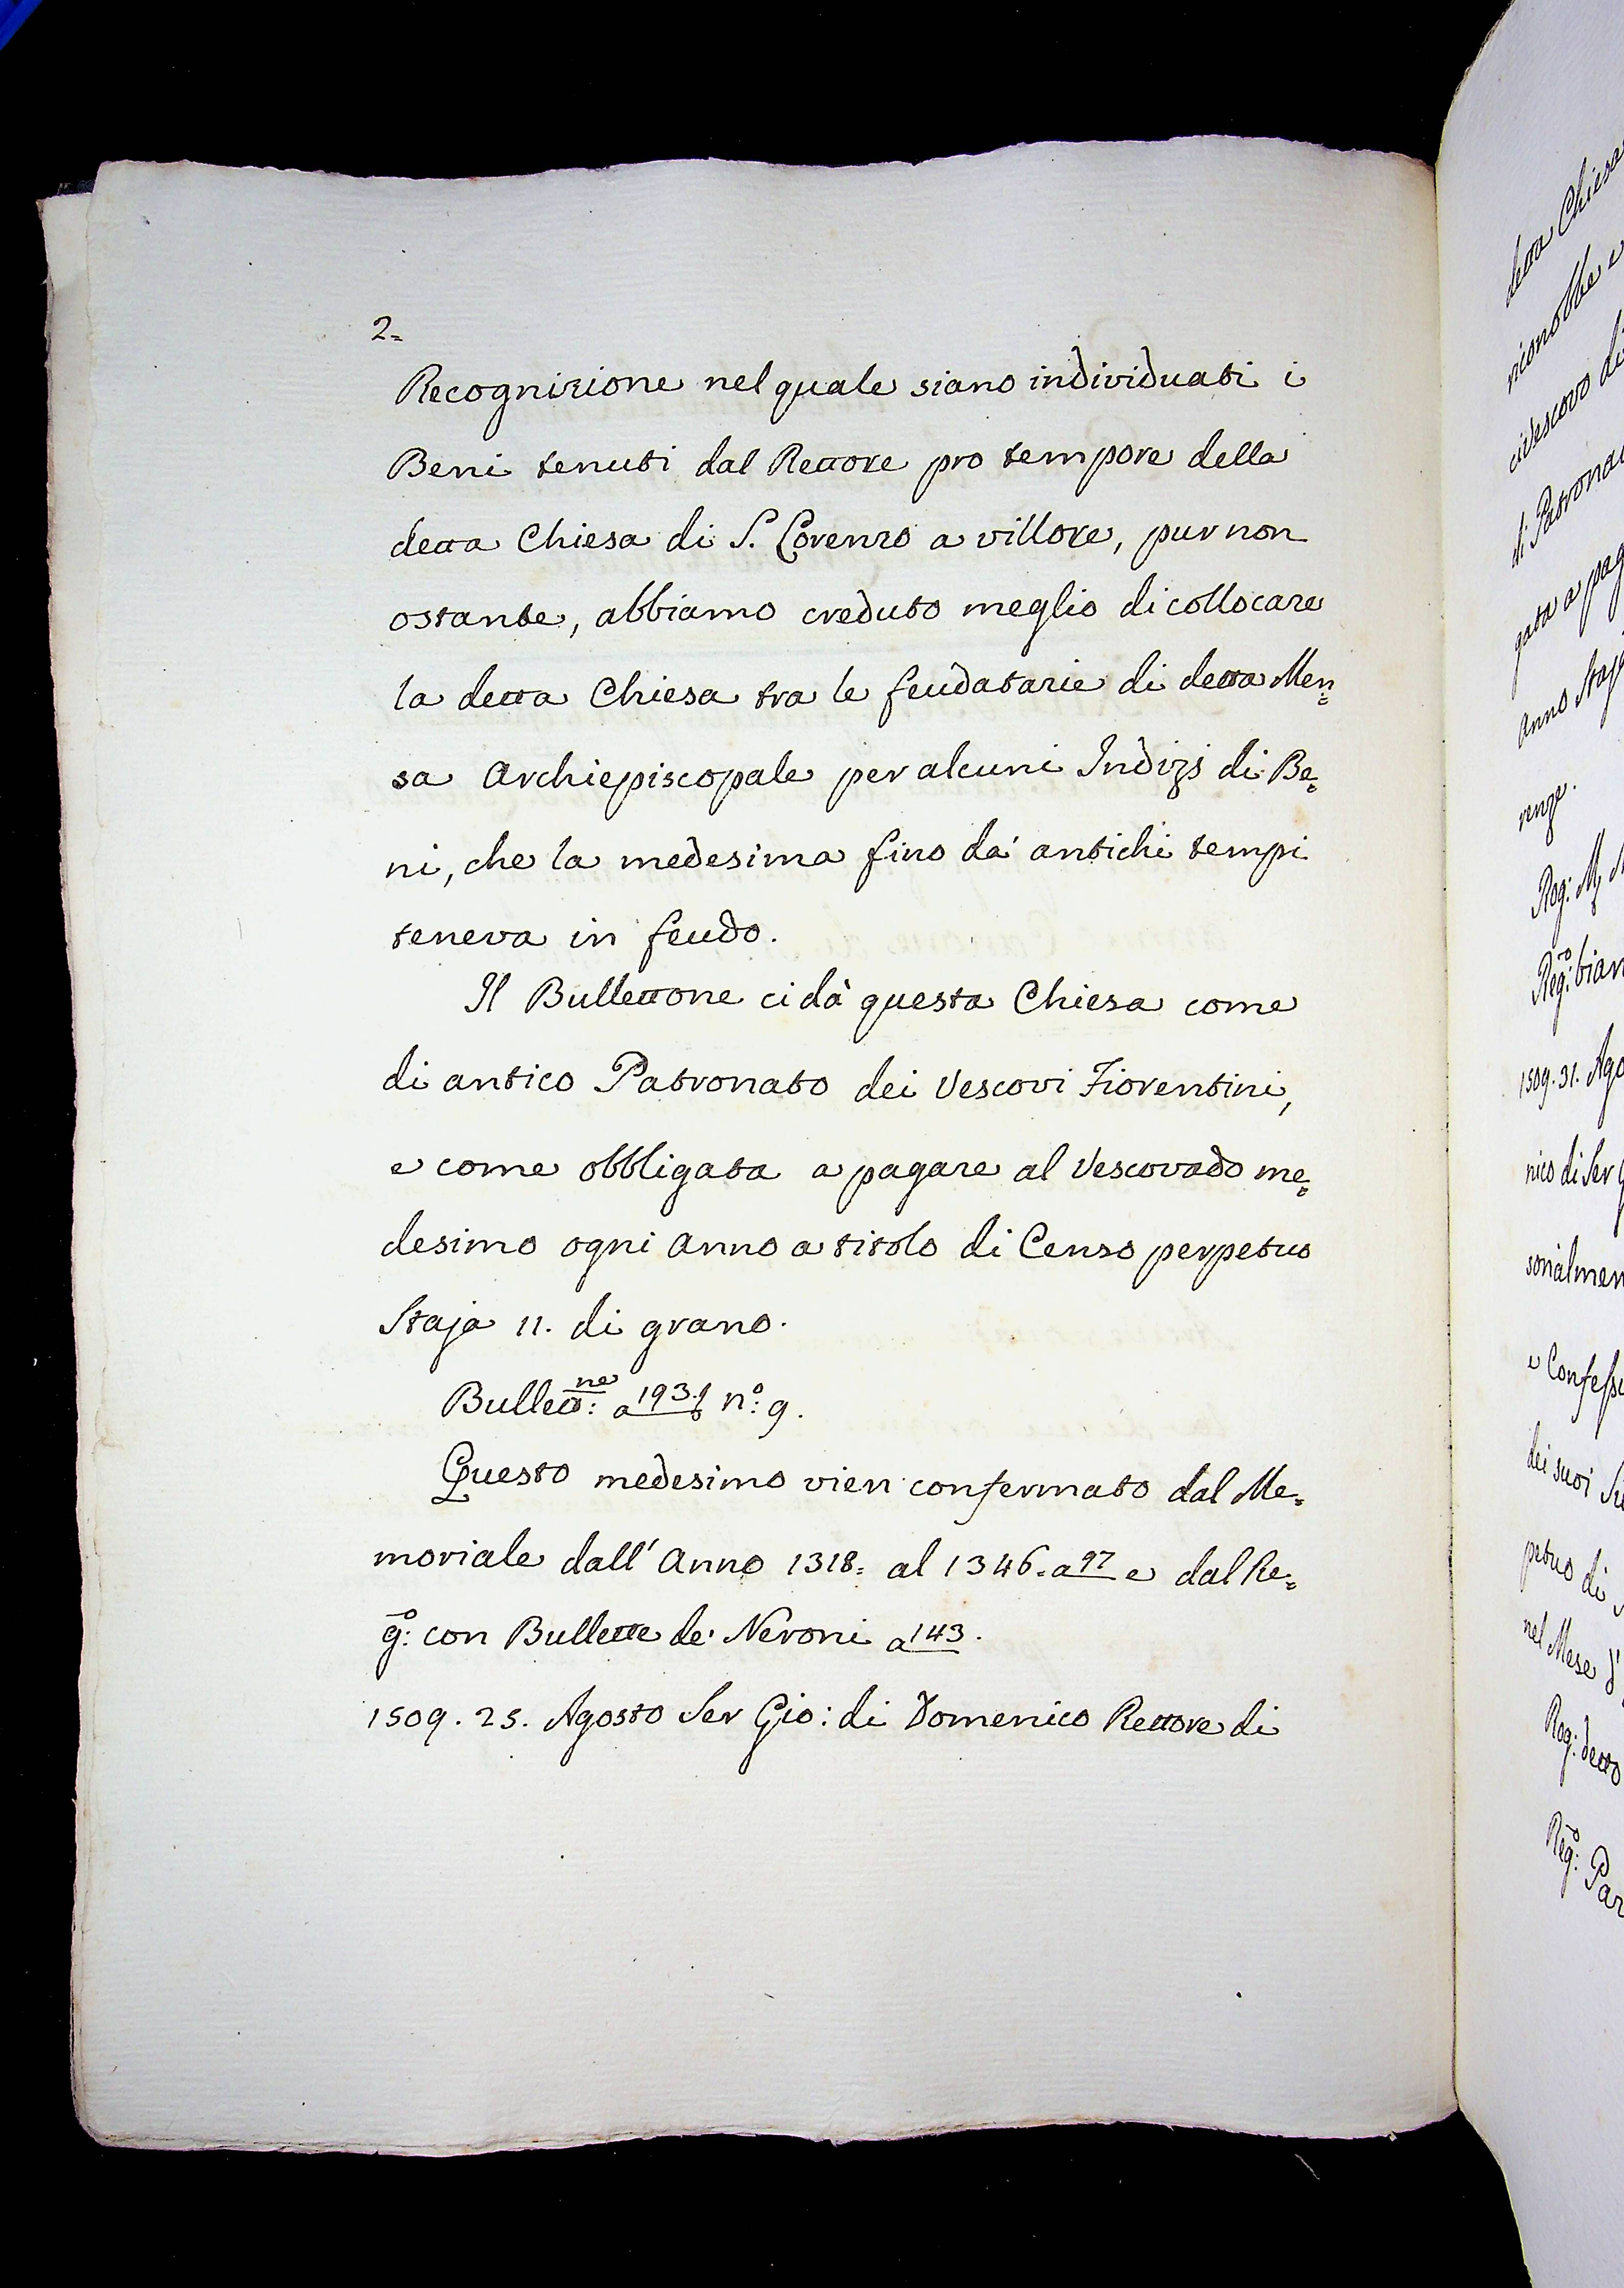 2=
Recognizione nel quale siano individuati i
Beni tenuti dal Rettore pro tempore della
detta Chiesa di S. Lorenzo a villore, pur non
ostante, abbiamo creduto meglio di collocare
la detta Chiesa tra le feudatarie di detta Men=
sa Archiepiscopale per alcuni Indizj di Be=
ni, che la medesima fino da' antichi tempi
teneva in feudo.
Il Bullettone ci dà questa Chiesa come
di antico Patronato dei Vescovi Fiorentini,
e come obbligata a pagare al Vescovado me=
desimo ogni Anno a titolo di Censo perpetuo
Staja 11. di grano.
Bullett:ne a 193. nº: 9.
Questo medesimo vien confermato dal Me=
moriale dall' Anno 1318= al 1346. a 97 e dal Re=
g:º con Bullette de' Neroni a 143.
1509. 25. Agosto Ser Gio: di Domenico Rettore di
detta Chiesa
riconobbe e
civescovo di
di Patrona
gata a pag
Anno Staj
renze.
Rog:
Reg:º bian
1509. 31. Ago
nico di Ser G
sonalmen
e Confess
dei suoi Su
petuo di
nel Mese d'
Rog: detto
Reg:º Par